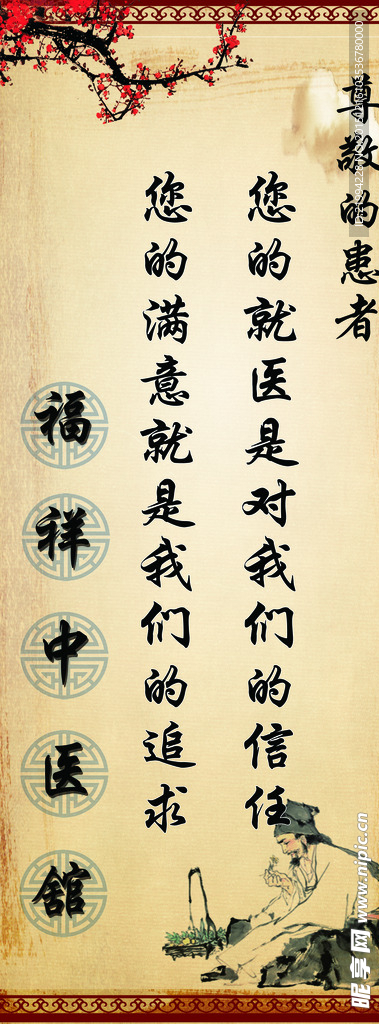 尊敬的患者
您的就医是对我们的信任
您的满意就是我们的追求
福祥中医舘
昵享网 www.nipic.cn